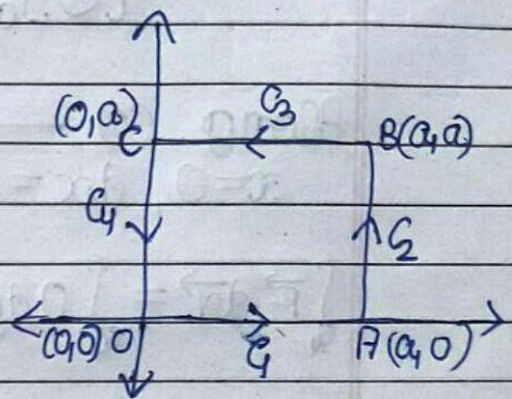 C₃
(0,a) C B(a,a)
C₄ C₂
(0,0) O C₁ A(a,0)